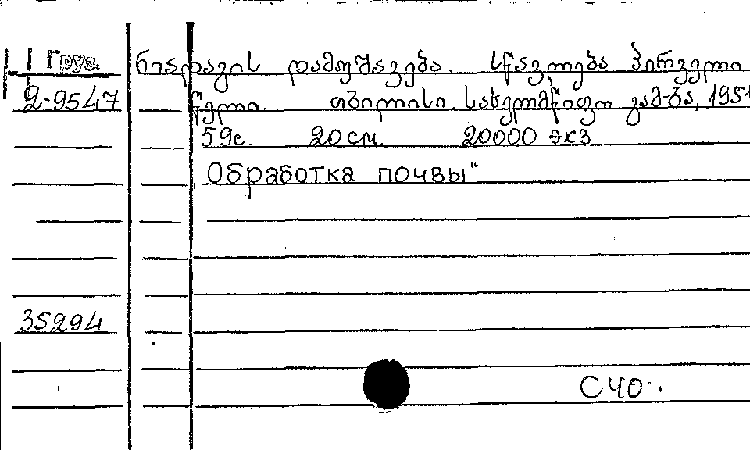 Груз. ნიადაგის დამუშავება. სწავლება პირველი
2-9547 წელი. თბილისი. სახელმწიფო გამ-ბა, 1951
59с. 20см. 20000 экз
Обработка почвы"
35294
С40.